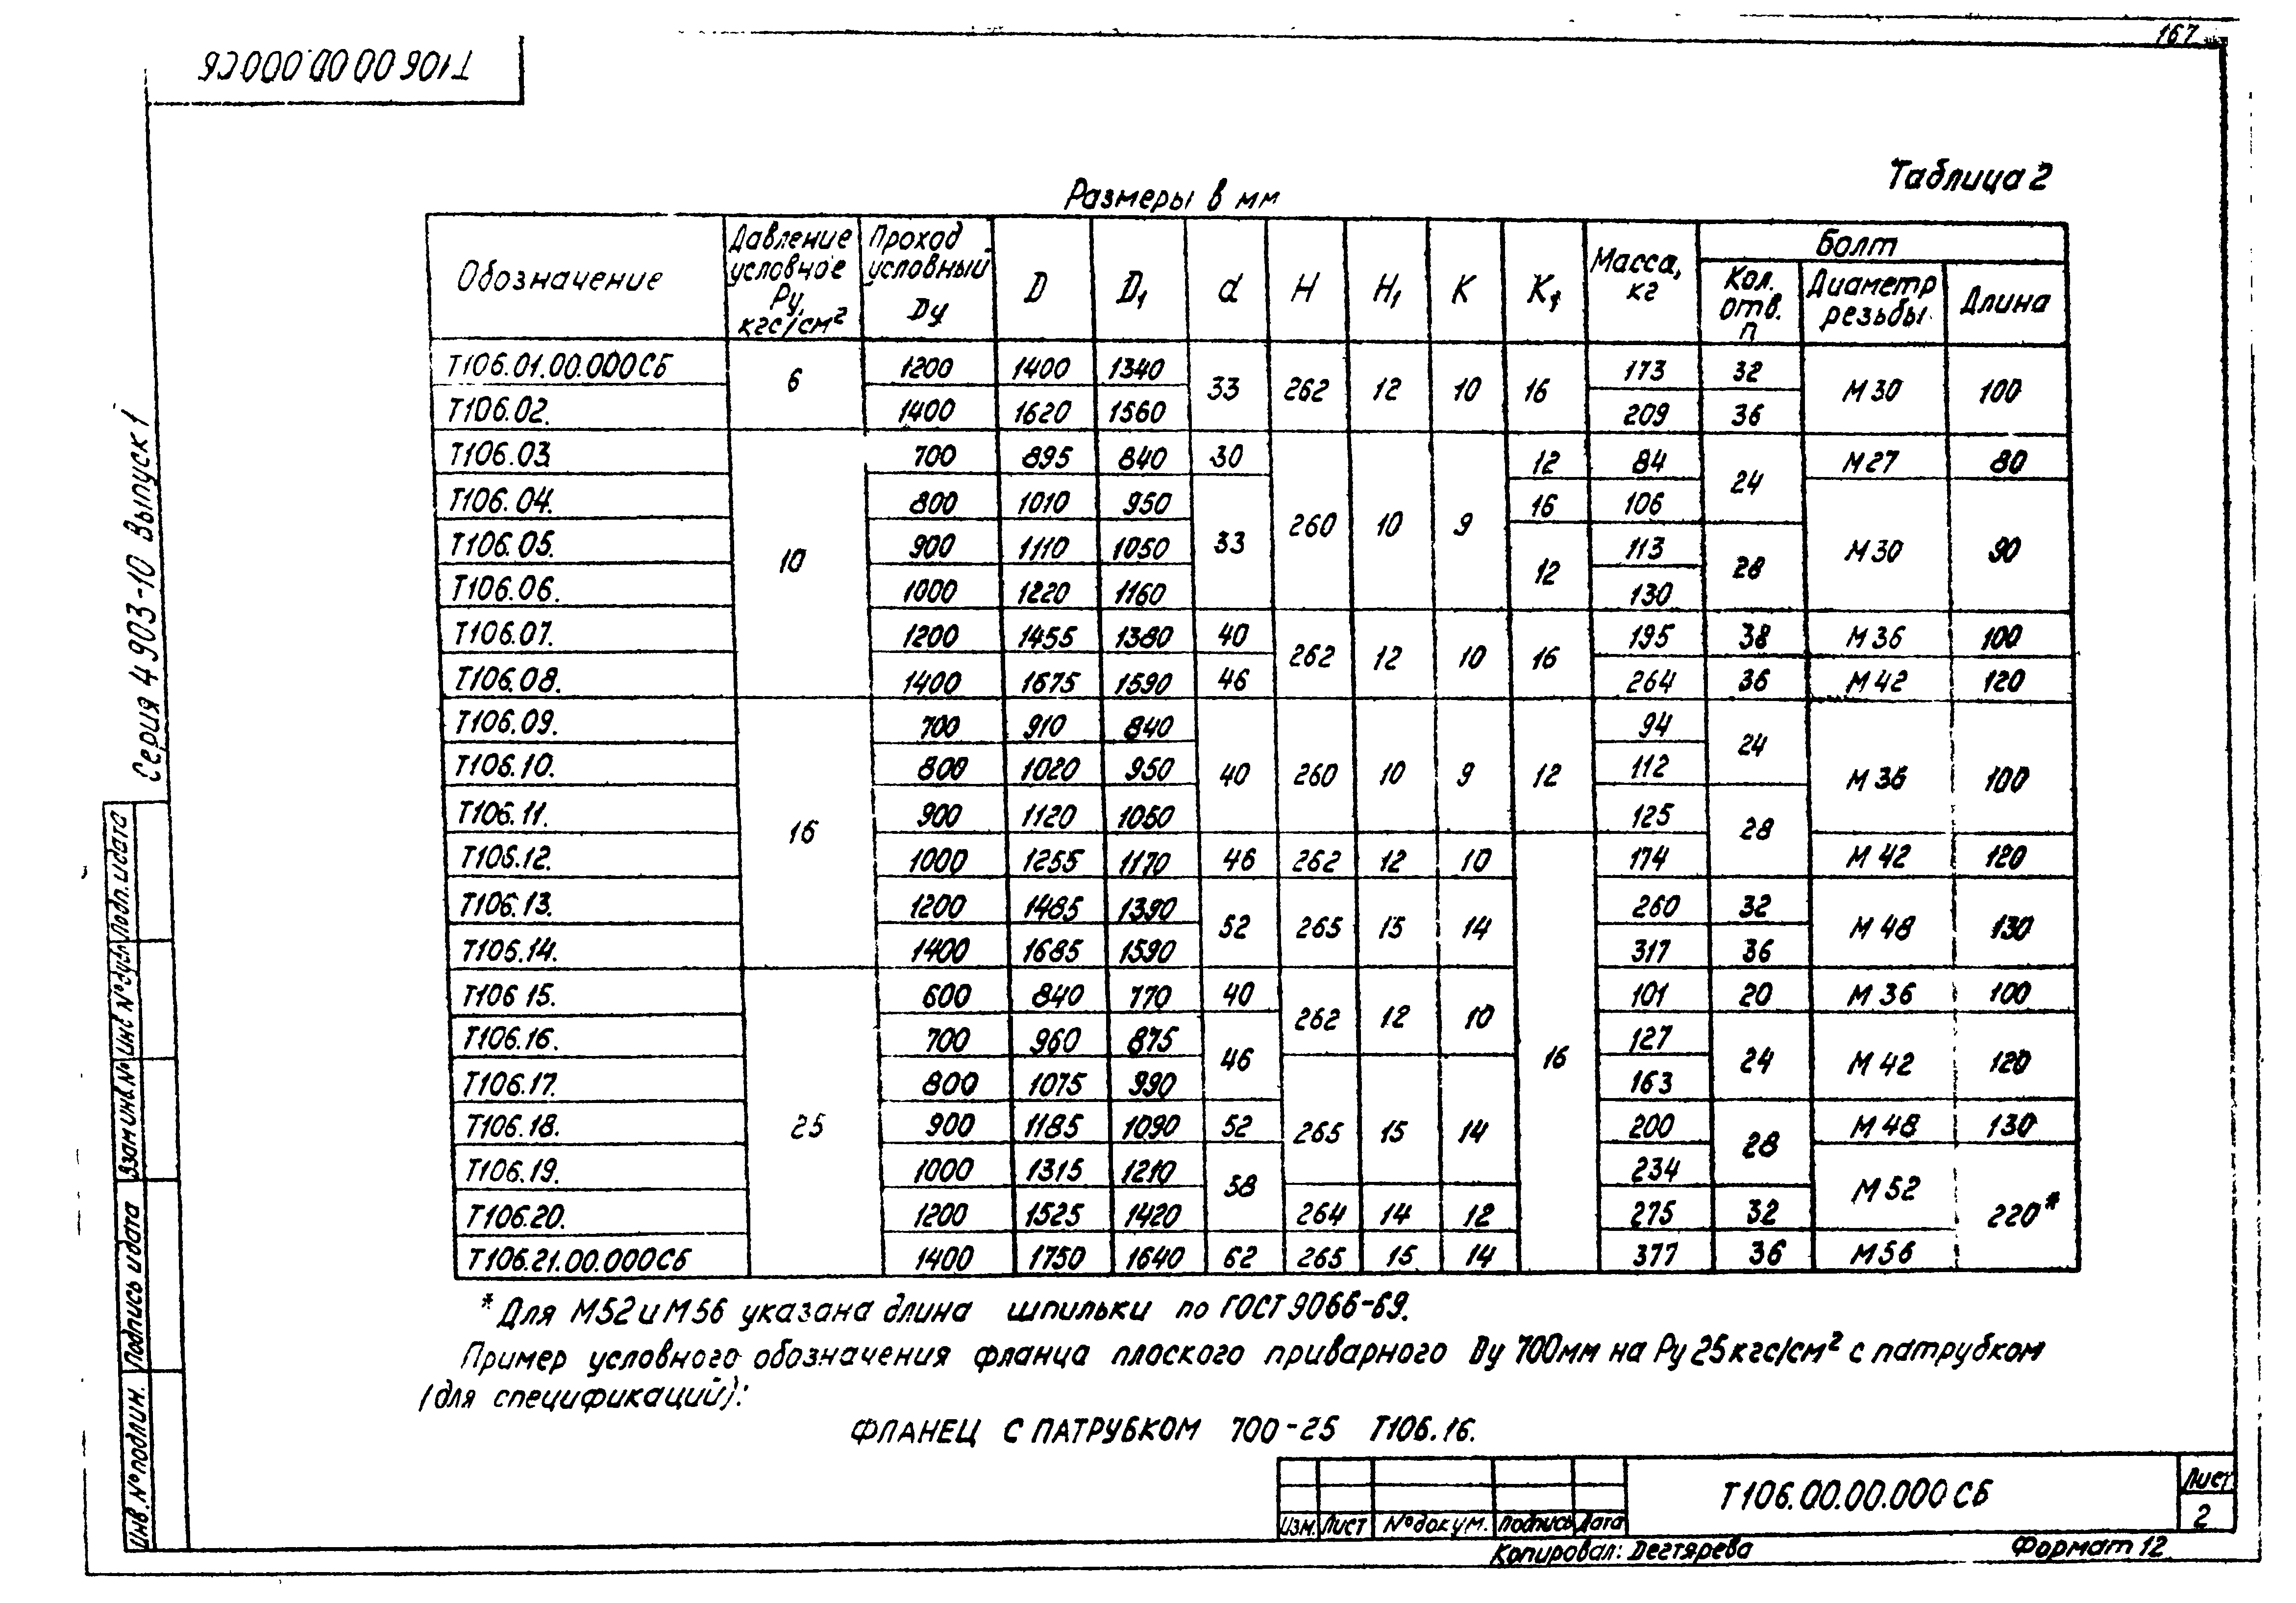 167
Т106.00.00.000СБ
Таблица 2
Размеры в мм
Обозначение | Давление условное Ру, кгс/см² | Проход условный Dу | D | D₁ | d | H | H₁ | K | K₁ | Масса, кг | Болт
Кол. отв. п | Диаметр резьбы | Длина
Т106.01.00.000СБ | 6 | 1200 | 1400 | 1340 | 33 | 262 | 12 | 10 | 16 | 173 | 32 | М30 | 100
Т106.02. | 1400 | 1620 | 1560 | 209 | 36
Т106.03. | 10 | 700 | 895 | 840 | 30 | 260 | 10 | 9 | 12 | 84 | 24 | М27 | 80
Т106.04. | 800 | 1010 | 950 | 33 | 16 | 106 | М30 | 90
Т106.05. | 900 | 1110 | 1050 | 12 | 113 | 28
Т106.06. | 1000 | 1220 | 1160 | 130
Т106.07. | 1200 | 1455 | 1380 | 40 | 262 | 12 | 10 | 16 | 195 | 38 | М36 | 100
Т106.08. | 1400 | 1675 | 1590 | 46 | 264 | 36 | М42 | 120
Т106.09. | 16 | 700 | 910 | 840 | 40 | 260 | 10 | 9 | 12 | 94 | 24 | М36 | 100
Т106.10. | 800 | 1020 | 950 | 112
Т106.11. | 900 | 1120 | 1050 | 125 | 28
Т106.12. | 1000 | 1255 | 1170 | 46 | 262 | 12 | 10 | 16 | 174 | М42 | 120
Т106.13. | 1200 | 1485 | 1390 | 52 | 265 | 15 | 14 | 260 | 32 | М48 | 130
Т106.14. | 1400 | 1685 | 1590 | 317 | 36
Т106 15. | 25 | 600 | 840 | 770 | 40 | 262 | 12 | 10 | 101 | 20 | М36 | 100
Т106.16. | 700 | 960 | 875 | 46 | 127 | 24 | М42 | 120
Т106.17. | 800 | 1075 | 990 | 265 | 15 | 14 | 163
Т106.18. | 900 | 1185 | 1090 | 52 | 200 | 28 | М48 | 130
Т106.19. | 1000 | 1315 | 1210 | 58 | 234 | М52 | 220*
Т106.20. | 1200 | 1525 | 1420 | 264 | 14 | 12 | 275 | 32
Т106.21.00.000СБ | 1400 | 1750 | 1640 | 62 | 265 | 15 | 14 | 377 | 36 | М56
* Для М52 и М56 указана длина шпильки по ГОСТ 9066-69.
Пример условного обозначения фланца плоского приварного Dу 700мм на Ру 25кгс/см² с патрубком
(для спецификаций):
ФЛАНЕЦ С ПАТРУБКОМ 700-25 Т106.16.
Серия 4 903-10 Выпуск 1
Подп. и дата
Инв № дубл
Взам инв. №
Подпись и дата
Инв. № подлин.
Изм. Лист № докум. Подпись Дата
Т106.00.00.000 СБ
Лист
2
Копировал: Дегтярева
Формат 12